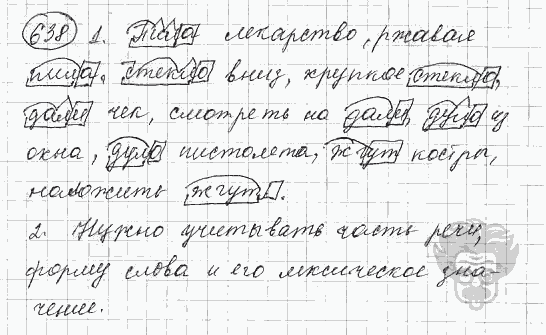 638 1. Пила лекарство, ржавая
пила, стекло вниз, хрупкое стекло,
дали чек, смотреть на дали, дуло из
окна, дуло пистолета, жгут костры,
наложить жгут.
2. Нужно учитывать часть речи,
форму слова и его лексическое зна-
чение.